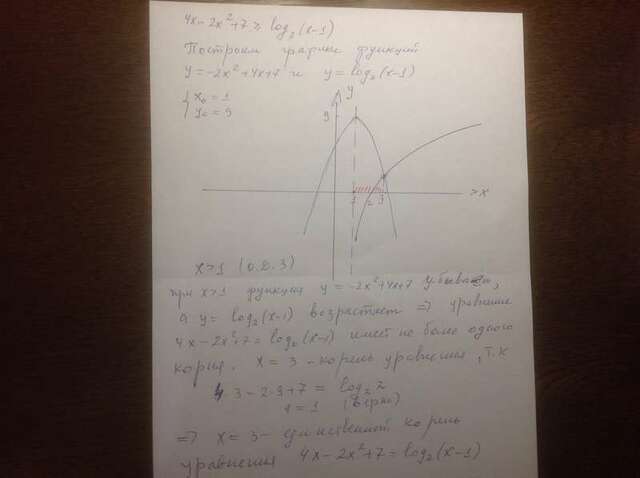 4x-2x²+7 ≥ log₂(x-1)
Построим графики функций
y=-2x²+4x+7 и y=log₂(x-1)
x₀ = 1
y₀ = 9
y
9
1 2 3 x
x>1 (О.Д.З)
при x>1 функция y=-2x²+4x+7 убывает,
а y=log₂(x-1) возрастает ⇒ уравнение
4x-2x²+7=log₂(x-1) имеет не более одного
корня. x=3 - корень уравнения, т.к
4·3-2·9+7=log₂2
1=1 (Верно)
⇒ x=3- единственный корень
уравнения 4x-2x²+7=log₂(x-1)